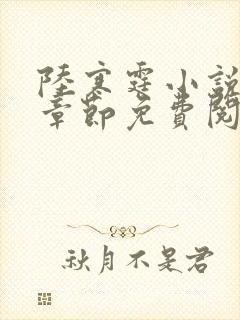 陸寒霆小說
章節免費閱
秋月不是君